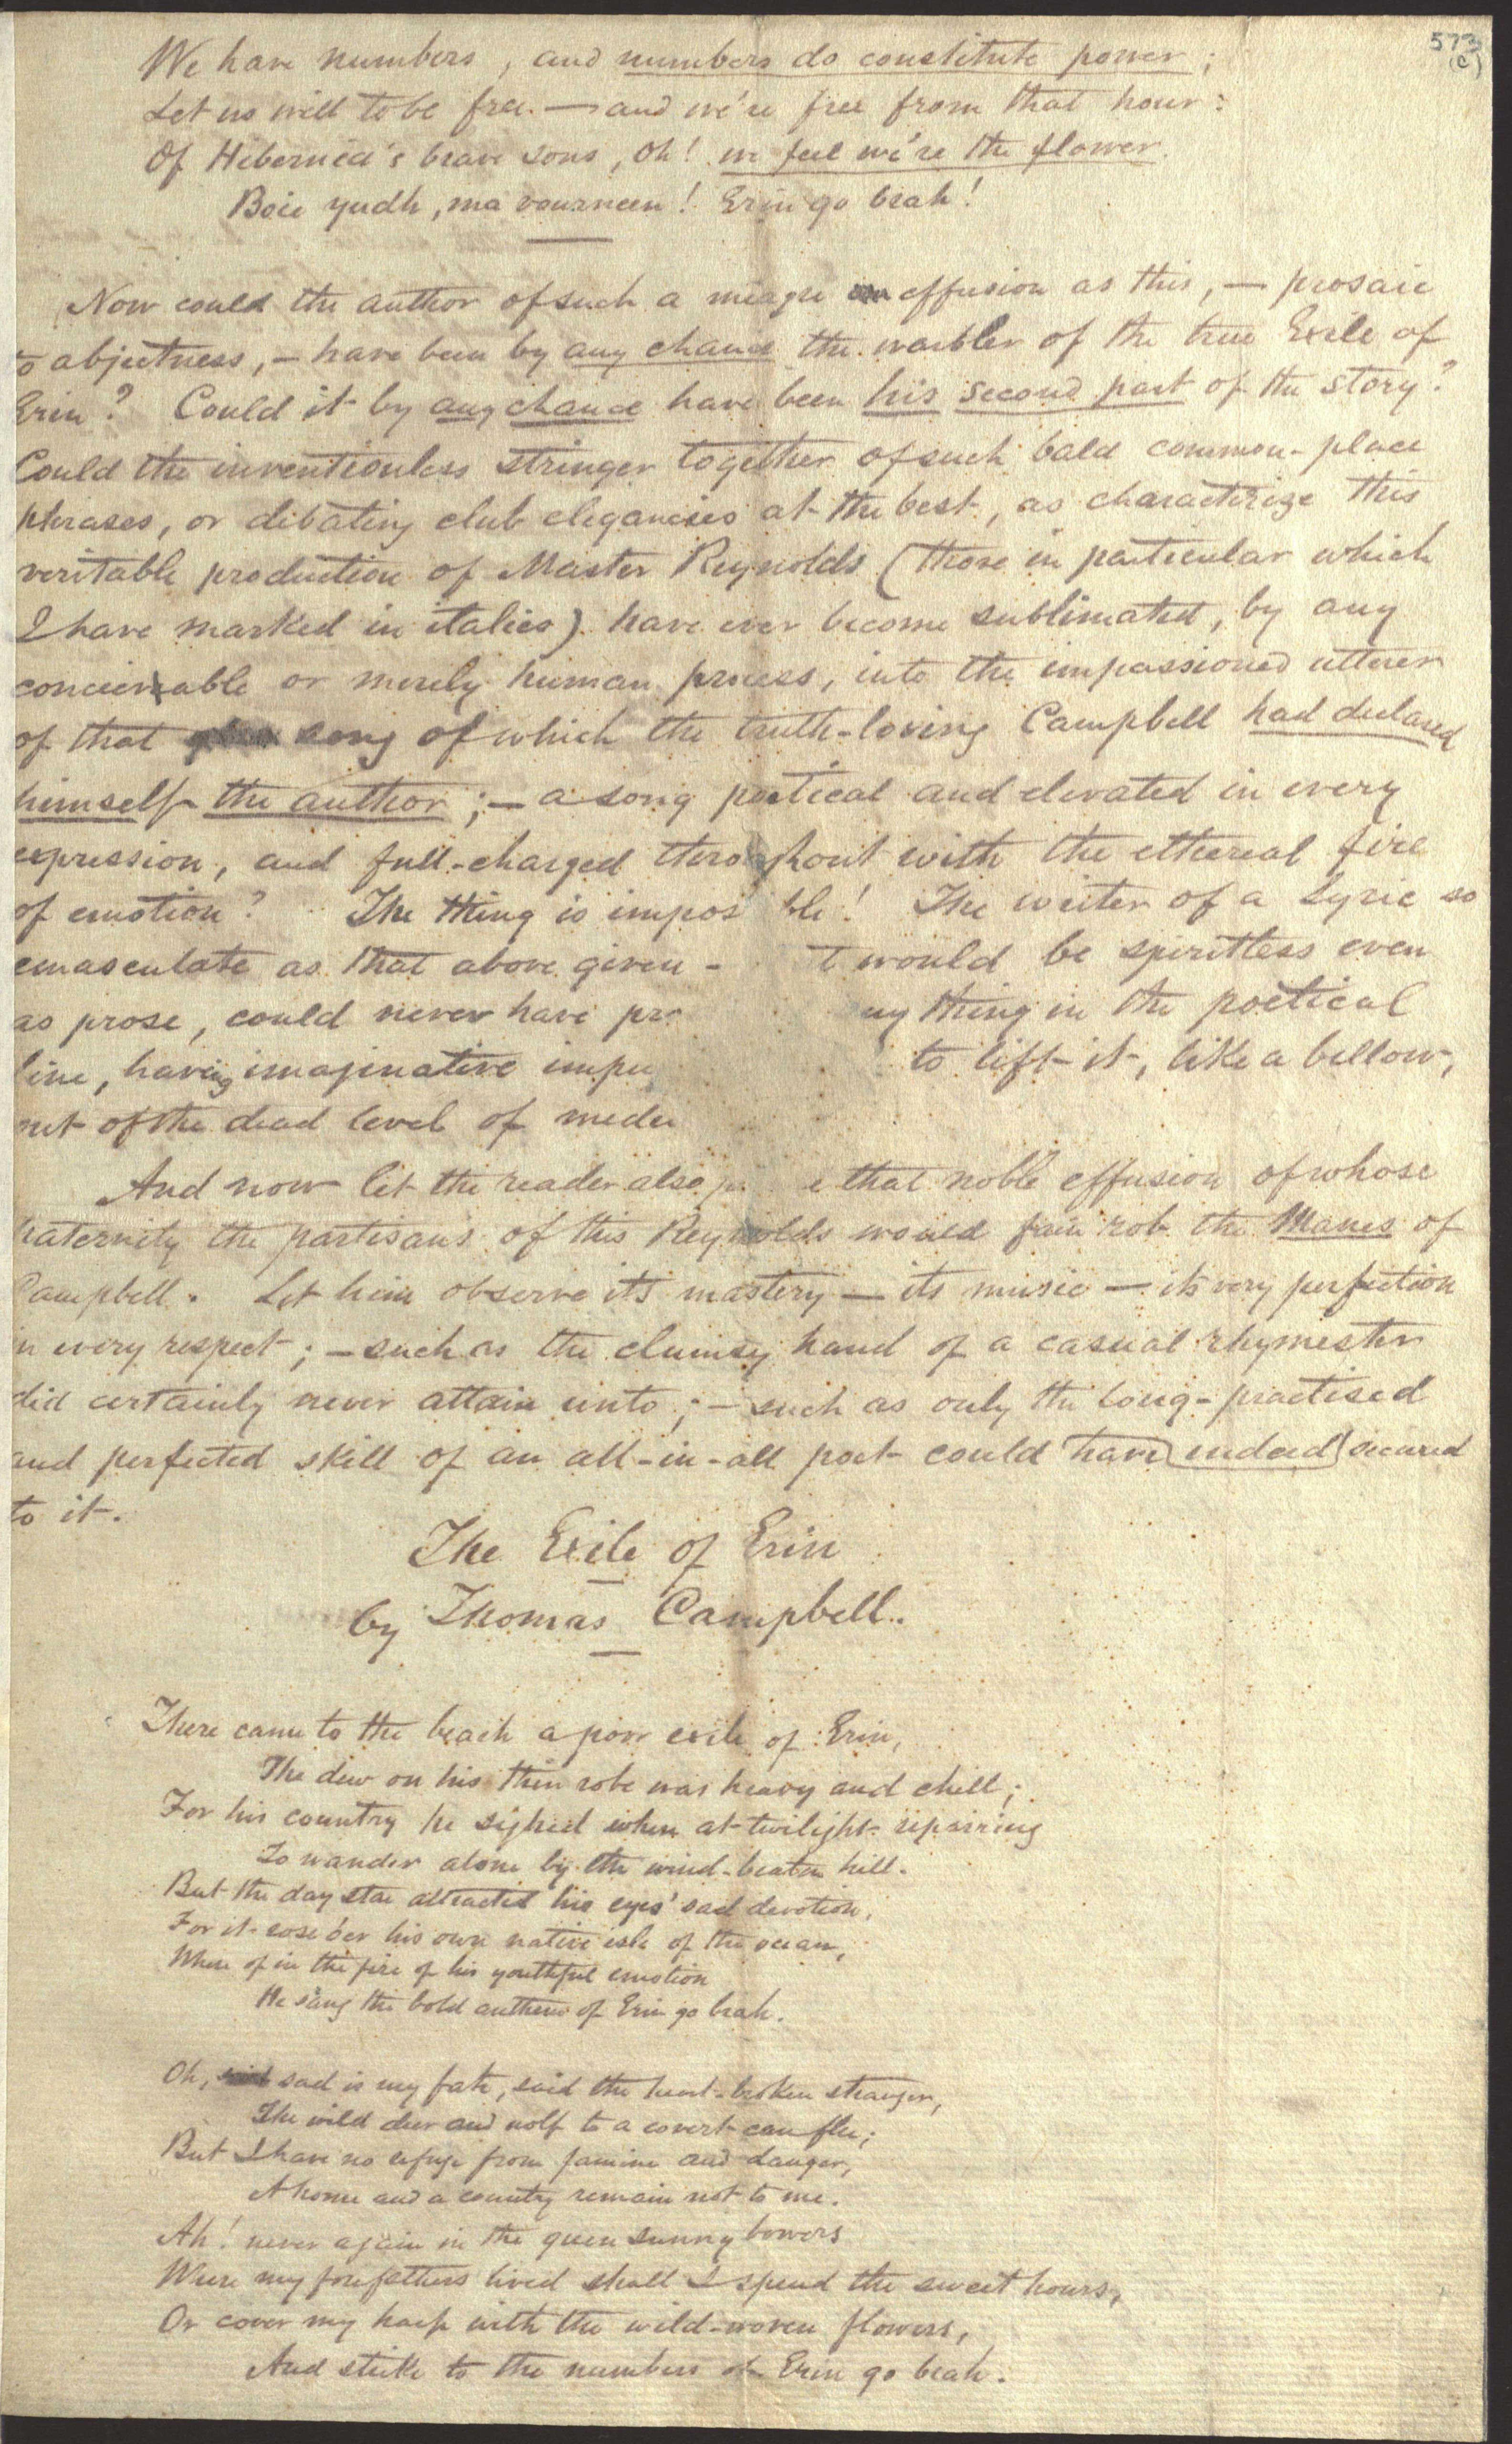 573
(c)
We have numbers, and numbers do constitute power;
Let us will to be free — and we're free from that hour:
Of Hibernia's brave sons, Oh! we feel we're the flower.
Boie yudh, ma vourneen! Erin go brah!
Now could the author of such a meagre effusion as this, — prosaic
to abjectness, — have been by any chance the warbler of the true Exile of
Erin? Could it by any chance have been his second part of the story?
Could the inventionless stringer together of such bald common-place
phrases, or debating club elegancies at the best, as characterize this
veritable production of Master Reynolds (those in particular which
I have marked in italics) have ever become sublimated, by any
conceivable or merely human process, into the impassioned utterer
of that song of which the truth-loving Campbell had declared
himself the author; — a song poetical and elevated in every
expression, and full-charged throughout with the ethereal fire
of emotion? The thing is impos ble! The writer of a Lyric so
emasculate as that above given - t would be spiritless even
as prose, could never have pr ny thing in the poetical
line, having imaginative impu to lift it, like a billow,
out of the dead level of medi
And now let the reader also p e that noble effusion of whose
paternity the partisans of this Reynolds would fain rob the Manes of
Campbell. Let him observe its mastery — its music — its very perfection
in every respect; — such as the clumsy hand of a casual rhymester
did certainly never attain unto; — such as only the long-practised
and perfected skill of an all-in-all poet could have indeed secured
to it.
The Exile of Erin
by Thomas Campbell.
There came to the beach a poor exile of Erin,
The dew on his thin robe was heavy and chill;
For his country he sighed when at twilight repairing
To wander alone by the wind-beaten hill.
But the day star attracted his eyes' sad devotion,
For it rose o'er his own native isle of the ocean,
Where of in the fire of his youthful emotion
He sang the bold anthem of Erin go brah.
Oh, sad is my fate, said the heart-broken stranger,
The wild deer and wolf to a covert can flee;
But I have no refuge from famine and danger,
A home and a country remain not to me.
Ah! never again in the green sunny bowers
Where my forefathers lived shall I spend the sweet hours,
Or cover my harp with the wild-woven flowers,
And strike to the numbers of Erin go brah.